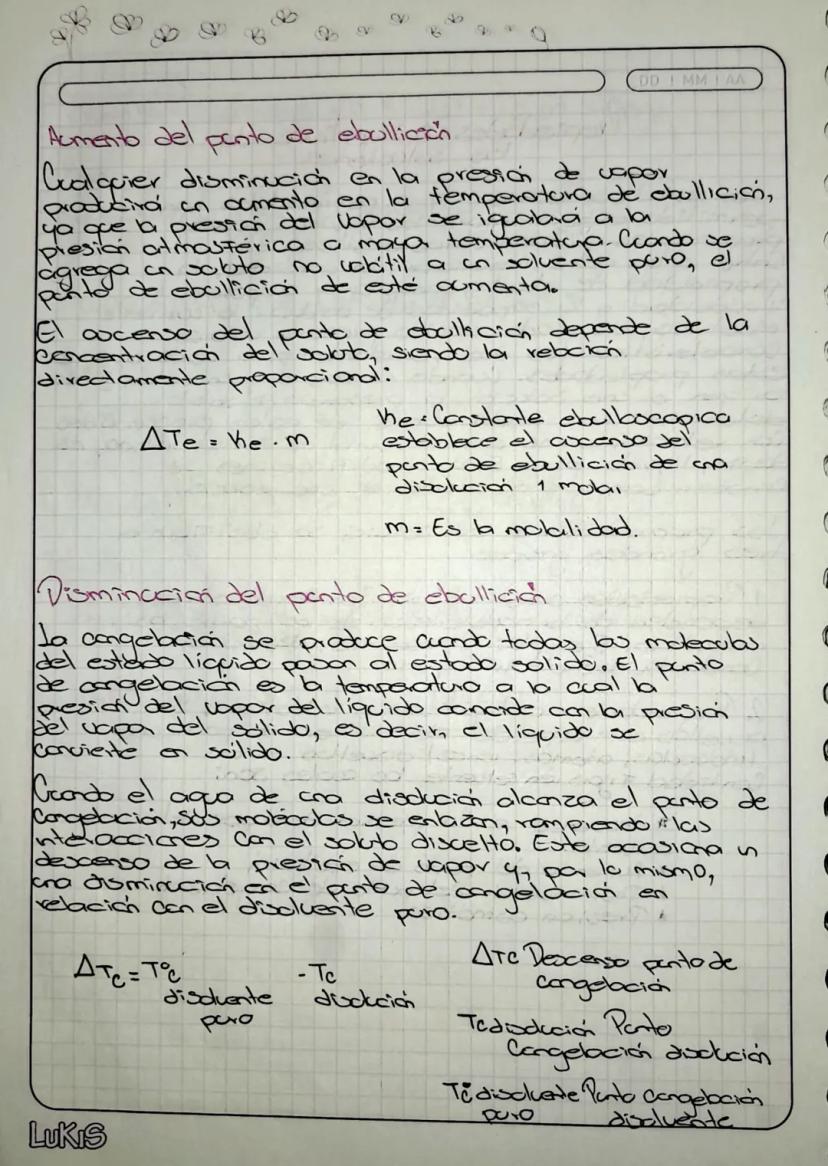 DD MM AA
Aumento del punto de ebullición
Cualquier disminución en la presión de vapor
producirá un aumento en la temperatura de ebullición,
ya que la presión del vapor se igualará a la
presión atmosférica a mayor temperatura. Cuando se
agrega un soluto no volátil a un solvente puro, el
punto de ebullición de esté aumenta.
El ascenso del punto de ebullición depende de la
concentración del soluto, siendo la relación
directamente proporcional:
ΔTe = Ke . m
Ke = Constante ebulloscopica
establece el ascenso del
punto de ebullición de una
disolución 1 molal
m = Es la molalidad.
Disminución del punto de ebullición
La congelación se produce cuando todas las moleculas
del estado líquido pasan al estado solido. El punto
de congelación es la temperatura a la cual la
presión del vapor del líquido concide con la presión
del vapor del sólido, es decir, el líquido se
convierte en sólido.
Cuando el agua de una disolución alcanza el punto de
congelación, sus moléculas se enlazan, rompiendo las
interacciones con el soluto discelto. Esto ocasiona un
descenso de la presión de vapor y, por lo mismo,
una disminución en el punto de congelación en
relación con el disolvente puro.
ΔTc = T°c - Tc
disolvente disolución
puro
ΔTc Descenso punto de
congelación
Tc disolución Punto
Congelación disolución
T°c disolvente Punto congelación
puro disolvente
LUKIS